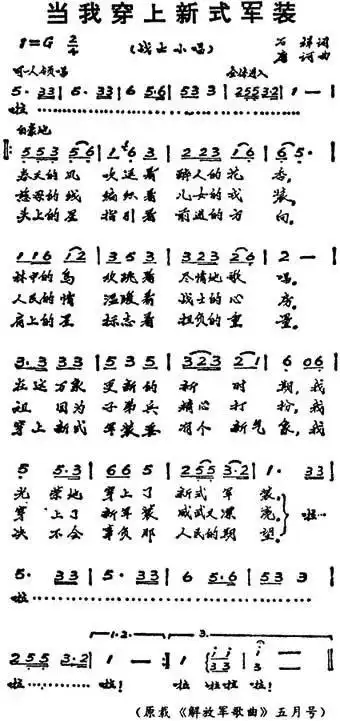 当我穿上新式军装
1=G 2/4 (战士小唱) 石祥词
唐诃曲
几人领唱 全体进入
5· 3 3 | 5· 3 3 | 6 5·6 | 5 3 3 | 2 5 5 3·2 | 1 — |
啦
自豪地
‖: 5 5 3 5 6 | 1 6 3 | 2 2 3 1 6 | 6 5· |
春天的风 吹送着 醉人的花 香。
慈母的线 编织着 儿女的戎 装。
头上的星 指引着 前进的方 向。
1 1 6 1 2 | 3 5 3 | 3 2 3 2 6 | 2 — |
林中的鸟 欢跳着 尽情地歌 唱。
人民的情 温暖着 战士的心 房。
肩上的星 标志着 担负的重 量。
3· 3 3 3 | 5 3 5 | 3 2 3 2 1 | 6 0 6 |
在这万象 更新的 新 时 期,我
祖 国为 子弟兵 精心 打 扮,我
穿上新式 军装要 有个 新气 象,我
5 5·3 | 6 6 5 | 2 5 5 3·2 | 1· 3 3 |
光 荣地 穿上了 新式 军 装。
穿 上了 新军装 威武又漂 亮。 啦…
决 不会 辜负那 人民的期 望。
5· 3 3 | 5· 3 3 | 6 5·6 | 5 3 3 |
啦
1·2· 3·
2 5 5 3·2 | 1 — :‖ 1 i i 3 3 | i 3 — ‖
啦 啦! 啦 啦啦 啦!
(原载《解放军歌曲》五月号)